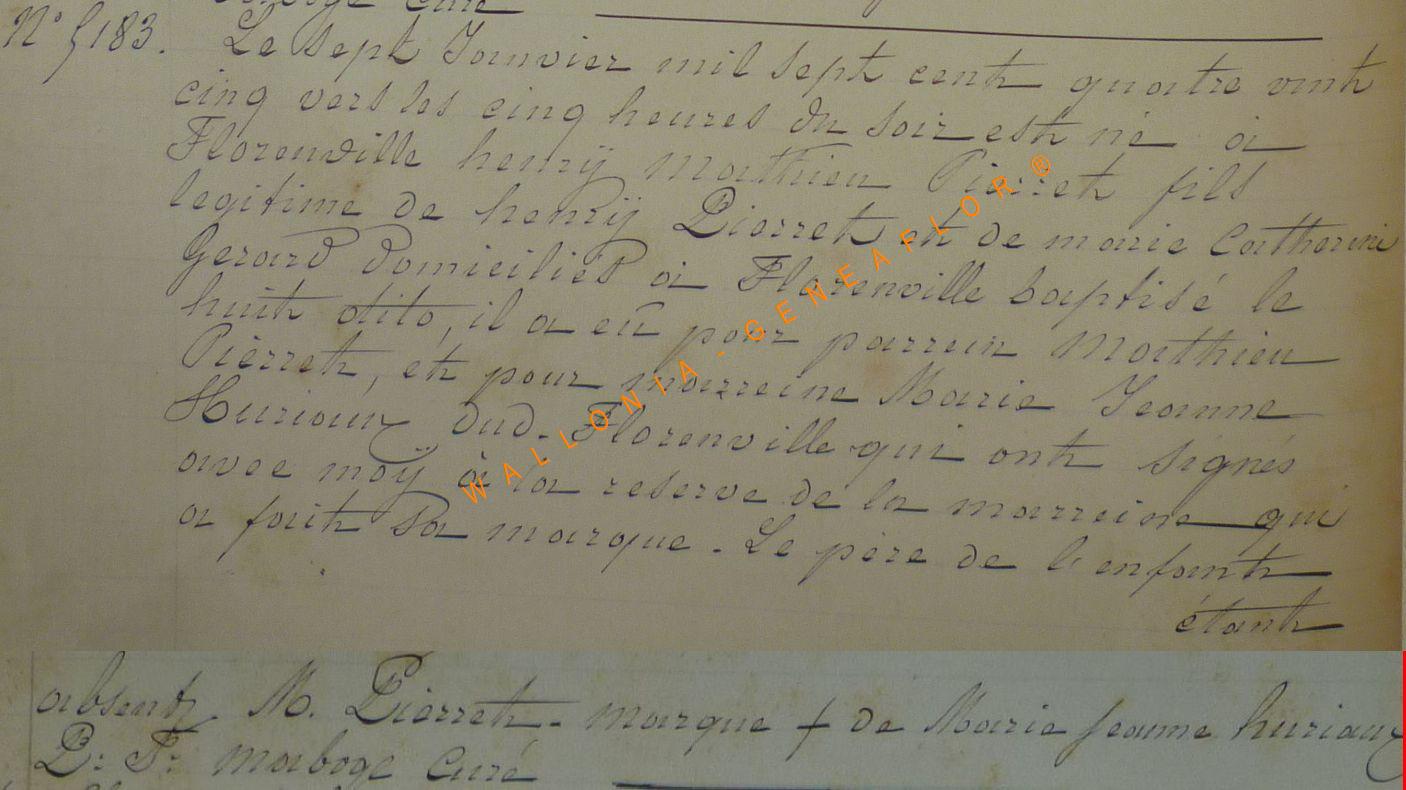 maboge Curé
N° 5183. Le sept Janvier mil sept cent quatre vint
cinq vers les cinq heures du soir est né à
Florenville henrÿ Mathieu Pierret fils
legitime de henrÿ Pierret et de marie Catherine
Gerard domiciliés à Florenville baptisé le
huit dito, il a eû pour parrein Mathieu
Pierret, et pour marreine Marie Jeanne
Huriaux dud. Florenville qui ont signés
avec moÿ à la reserve de la marreine qui
a fait sa marque. Le père de l'enfant
étant
absent, M. Pierret. marque + de Marie Jeanne huriaux
P: F: maboge Curé
WALLONIA - GENEAFLOR ®